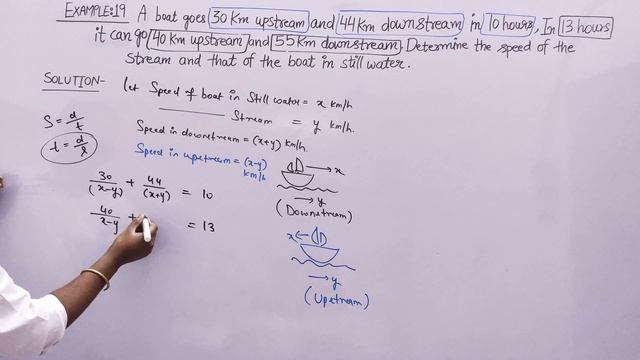 EXAMPLE:19 A boat goes 30 Km upstream and 44 Km downstream in 10 hours, In 13 hours
it can go 40 Km upstream and 55 Km downstream. Determine the speed of the
stream and that of the boat in still water.
SOLUTION- let Speed of boat in Still water = x km/h
Stream = y km/h.
S = d/t
t = d/s
Speed in downstream = (x+y) km/h.
Speed in upstream = (x-y) km/h
30/(x-y) + 44/(x+y) = 10
40/x-y + = 13
x
y
(Downstream)
x
y
(Upstream)